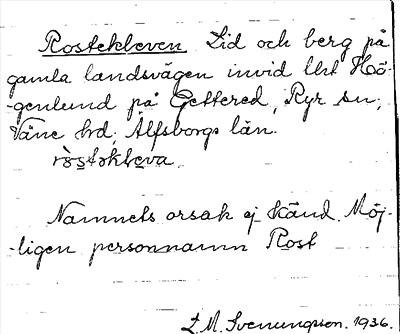 Rostekleven Lid och berg på
gamla landsvägen invid lht Hö-
-genlund på Gettered, Ryr sn,
Väne hd, Älfsborgs län.
ròstəkle̬va.
Namnets orsak ej känd. Möj-
-ligen personnamn Rost
L. M. Svenungsson. 1936.